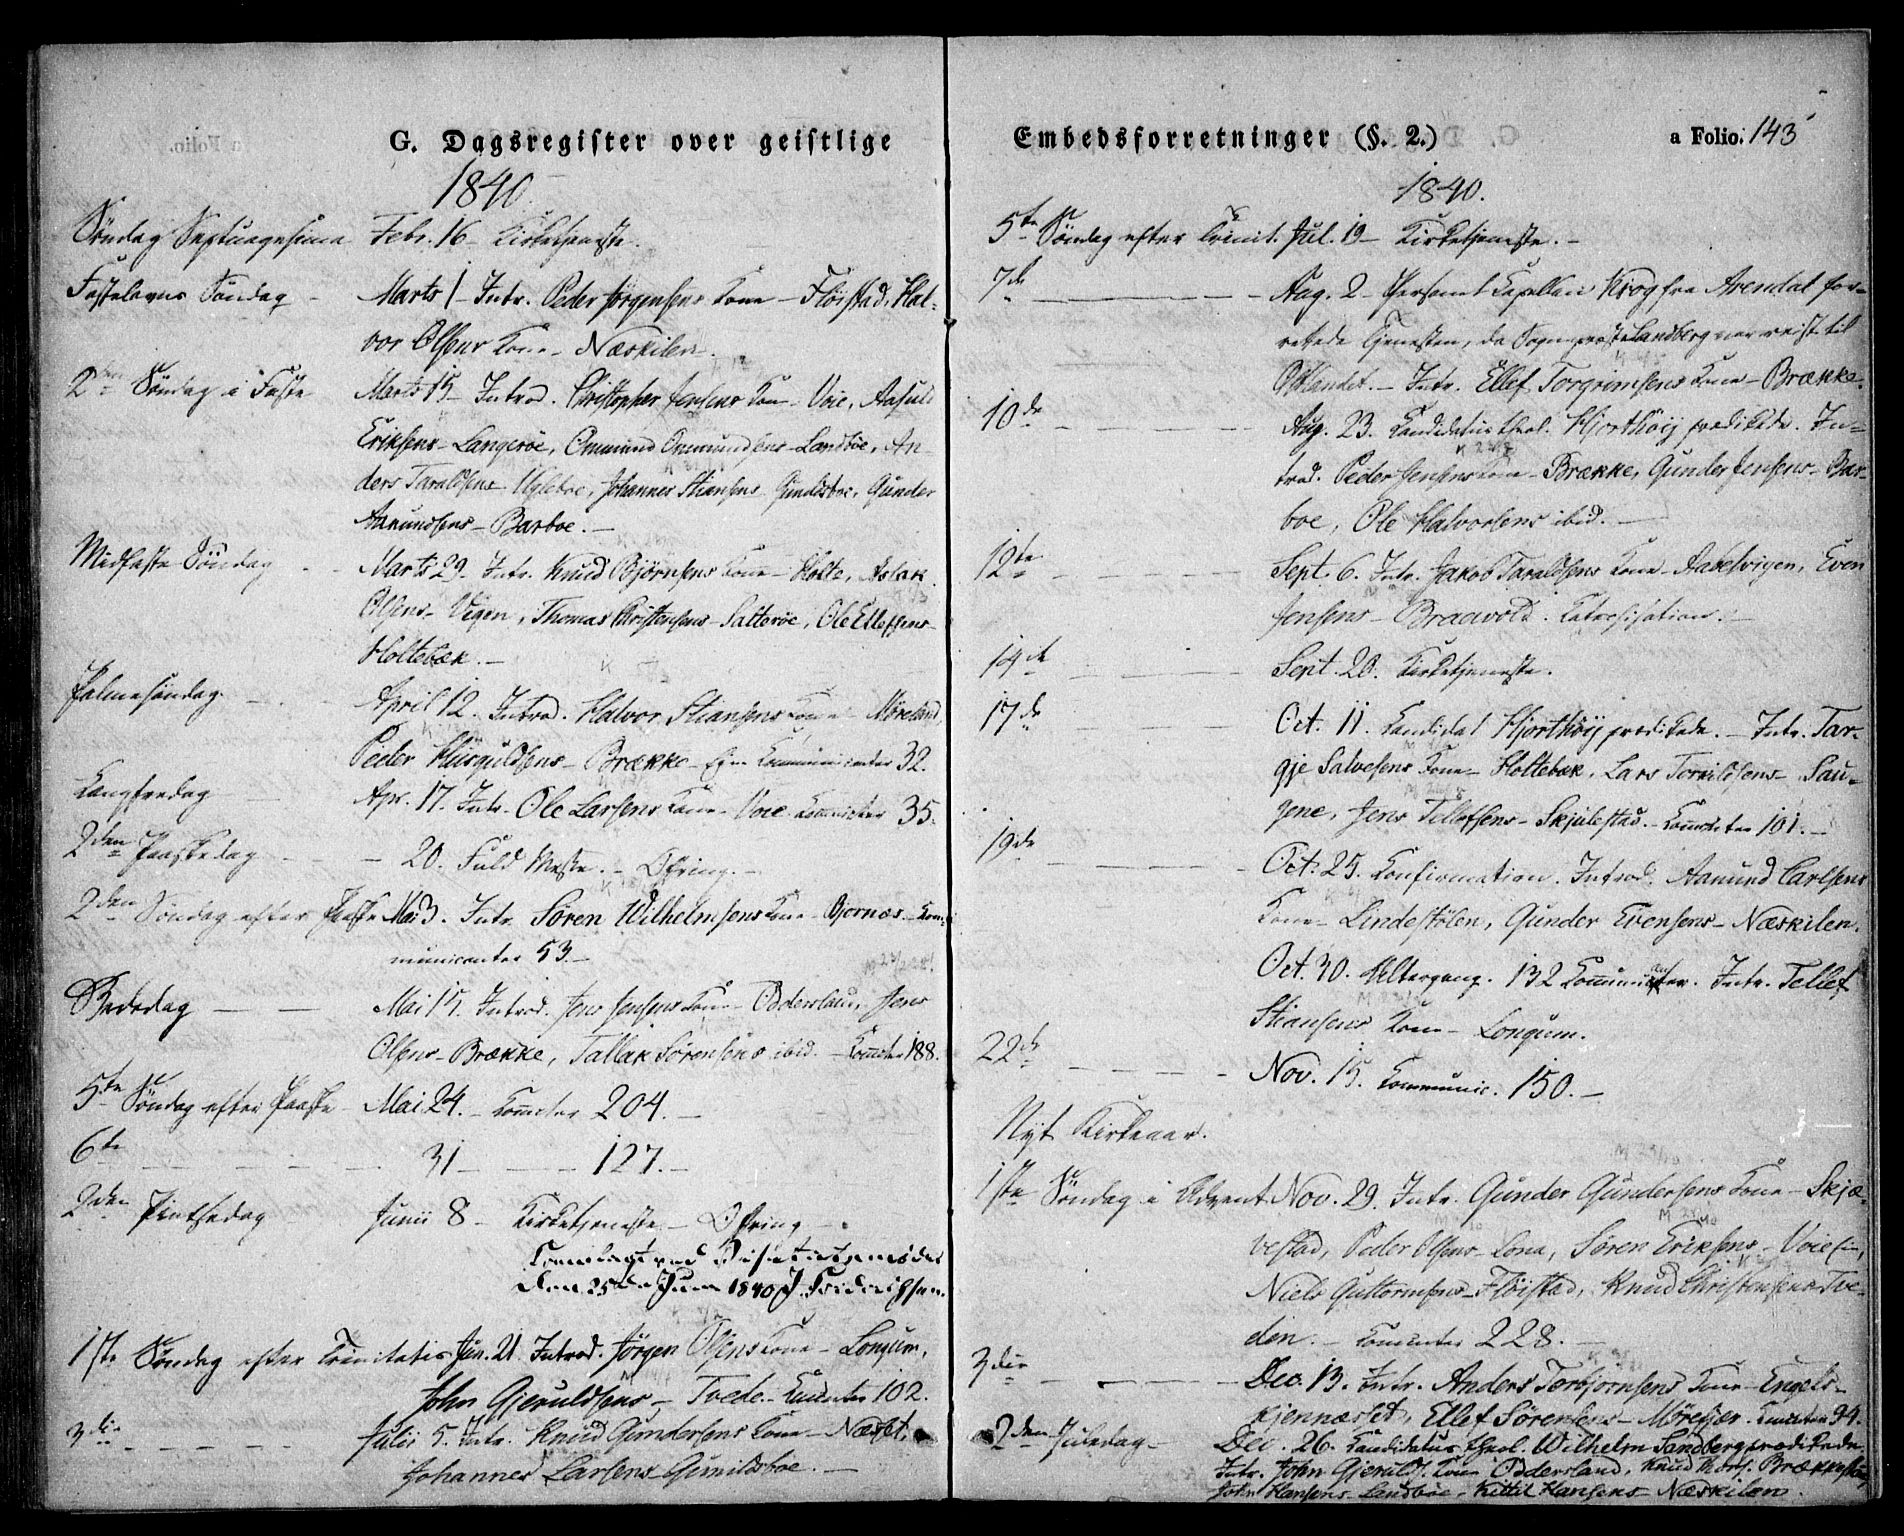 G. Dagsregister over geistlige
1840
Søndag Septuagesima Febr. 16 - Kirketjeneste.
Fastelavns Søndag - Marts 1 Intr. Peder Jørgensens Kone - Fløistad, Hal-
vor Olsens Kone - Næskilen.
2den Søndag i Faste Marts 15 - Introd. Christopher Jensens Kone - Voie, Aasuld
Eriksens - Langerøe, Ommund Ommundsens - Landbøe, An-
ders Taraldsens Ugleboe, Johannes Stiansens Gundesboe, Gunder
Aamundsens - Barboe. -
Midfaste Søndag - - Marts 29. Intr. Knud Bjørnsens Kone - Holte, Aslak
Olsens - Vigen, Thomas Christensens - Satterøe, Ole Ellefsens -
Holtebæk. -
Palmesøndag - - April 12. Introd. Halvor Stiansens Kone - Møreland,
Peder - Brække - Communicanter 32.
Langfredag - Apr. 17. Intr. Ole Larsens Kone - Voie 35.
2den Paaskedag - - 20. Fuld Messe. - Offring. -
2den Søndag efter Paaske Mai 3. Intr. Søren Wilhelmsens Kone - Bjornæs - Com-
municanter 53. -
Bededag - - Mai 15. Introd. Jens Jensens Kone - Oddersland, Jens
Olsens - Brække, Tallak Sørensens ibid. - 188.
5te Søndag efter Paaske - Mai 24. - 204. -
6te - - - 31 - - 127. -
2den Pintsedag - Junii 8 - Kirketjeneste. - Offring - .
Fremlagt ved Visitatsmødet
den 25de Juni 1840
1ste Søndag efter Trinitatis Jun. 21. Introd. Jørgen Olsens Kone - Longum,
John Gjeruldsens - Tvede. - 102.
3die - - - Julii 5. Intr. Knud Gundersens Kone - Næset,
Johannes Larsens Gunildsboe. -
Embedsforretninger (§. 2.)
a Folio. 143
1840.
5te Søndag efter Trinit. Jul. 19 - Kirketjeneste. -
7de - - - Aug. 2 - Personel Capellan Krog fra Arendal for-
rettede Tjenesten, da Sognepræst Landberg var reist til
Intr. Ellef Torgrimsens Kone - Brække.
10de Aug. 23. Kandidatus theol. Hjorthöij prædikede. In-
trod. Peder Jensens Kone - Brække, Gunder Jensens - Bar-
boe, Ole Halvorsens ibid. -
12te - - - Sept. 6. Intr. Jakob Taraldsens Kone - Aakelvigen, Even
Jensens - Braavold. Katechisation. -
14de - - - Sept. 20. Kirketjeneste.
17de - - - Oct. 11. Kandidat Hjorthöij prædikede. - Intr. Tar-
gje Salvesens Kone - Holtebæk, Lars - Sau-
gene, Jens Tellefsens - Skjulestad. - 101. -
19de - - - Oct. 25. Konfirmation. Introd. Aamund Carlsens
Kone - Lindestølen, Gunder Evensens - Næskilen.
Oct. 30. Altergang. 132 Communicanter. Intr. Tellef
Stiansens Kone - Longum.
22de - - - Nov. 15. Communic. 150. -
Nyt Kirkeaar.
1ste Søndag i Advent Nov. 29. Intr. Gunder Gundersens Kone - Skjæ-
vestad, Peder Olsens - Lona, Søren Eriksens - Voie
Niels Guttormsens - Fløistad, Knud Christensens Tve-
den. - 228. -
3die - - - Dec. 13. Intr. Anders Torbjørnsens Kone - Engels-
kjennæset, Ellef Sørensens - Mørefjær. 94.
2den Juledag - Dec. 26. Kandidatus theol. Wilhelm Sandberg prædikede
Intr. John Gjerulds. Kone Oddersland, Knud
John Hansens - Landbøe, Kittil Hansens - Næskilen.